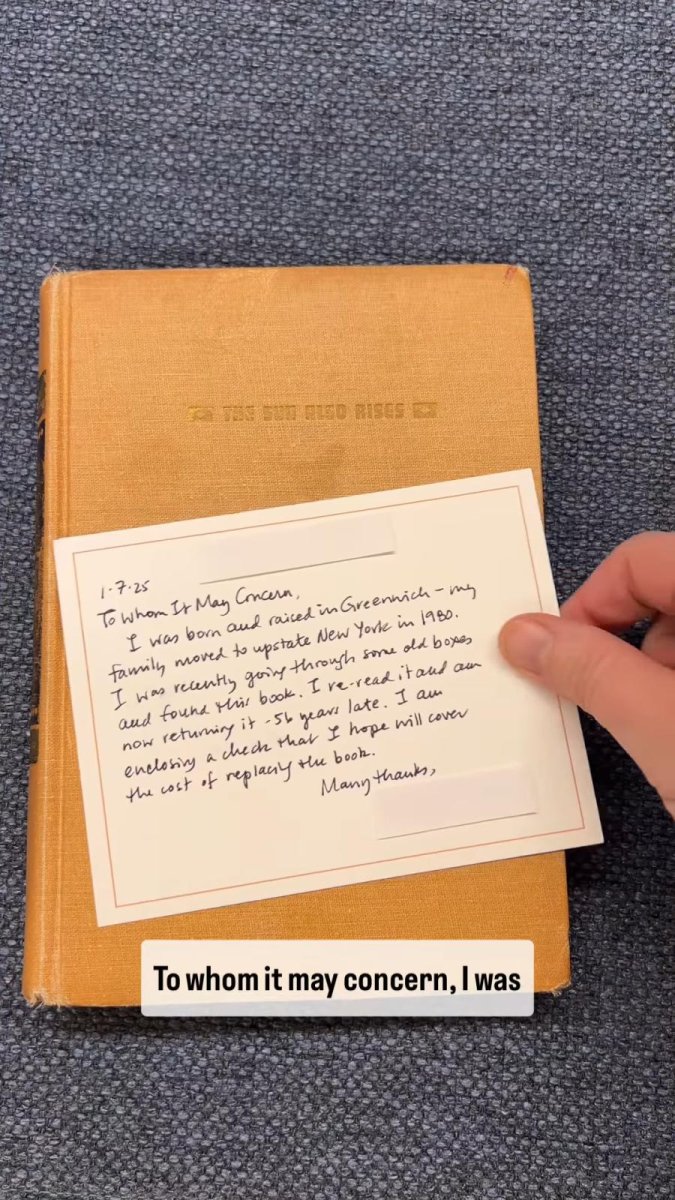 THE SUN ALSO RISES
1-7-25
To Whom It May Concern,
I was born and raised in Greenwich - my
family moved to upstate New York in 1980.
I was recently going through some old boxes
and found this book. I re-read it and am
now returning it - 56 years late. I am
enclosing a check that I hope will cover
the cost of replacing the book.
Many thanks,
To whom it may concern, I was